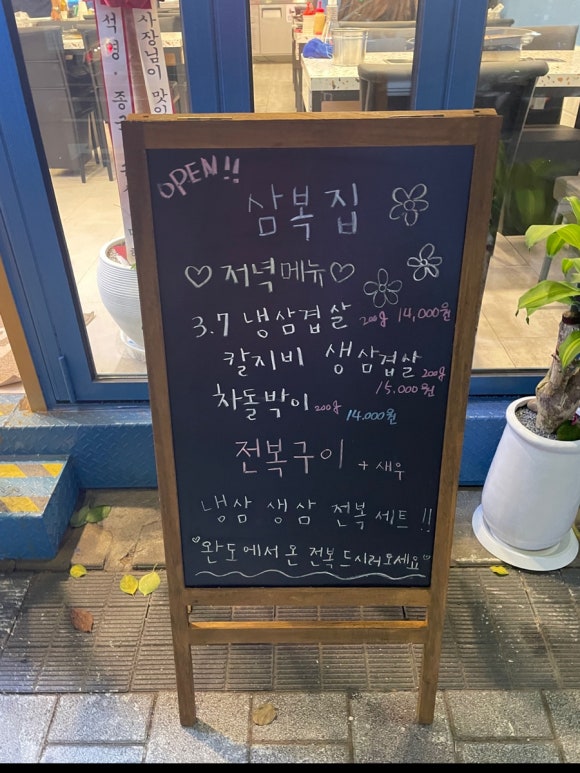 사장님이 맛있
석영·종국
OPEN!!
삼복집
♡저녁메뉴♡
3.7 냉삼겹살 200g 14,000원
칼지비 생삼겹살 200g
15,000원
차돌박이 200g 14.000원
전복구이 + 새우
냉삼 생삼 전복세트!!
♡완도에서 온 전복 드시러오세요♡